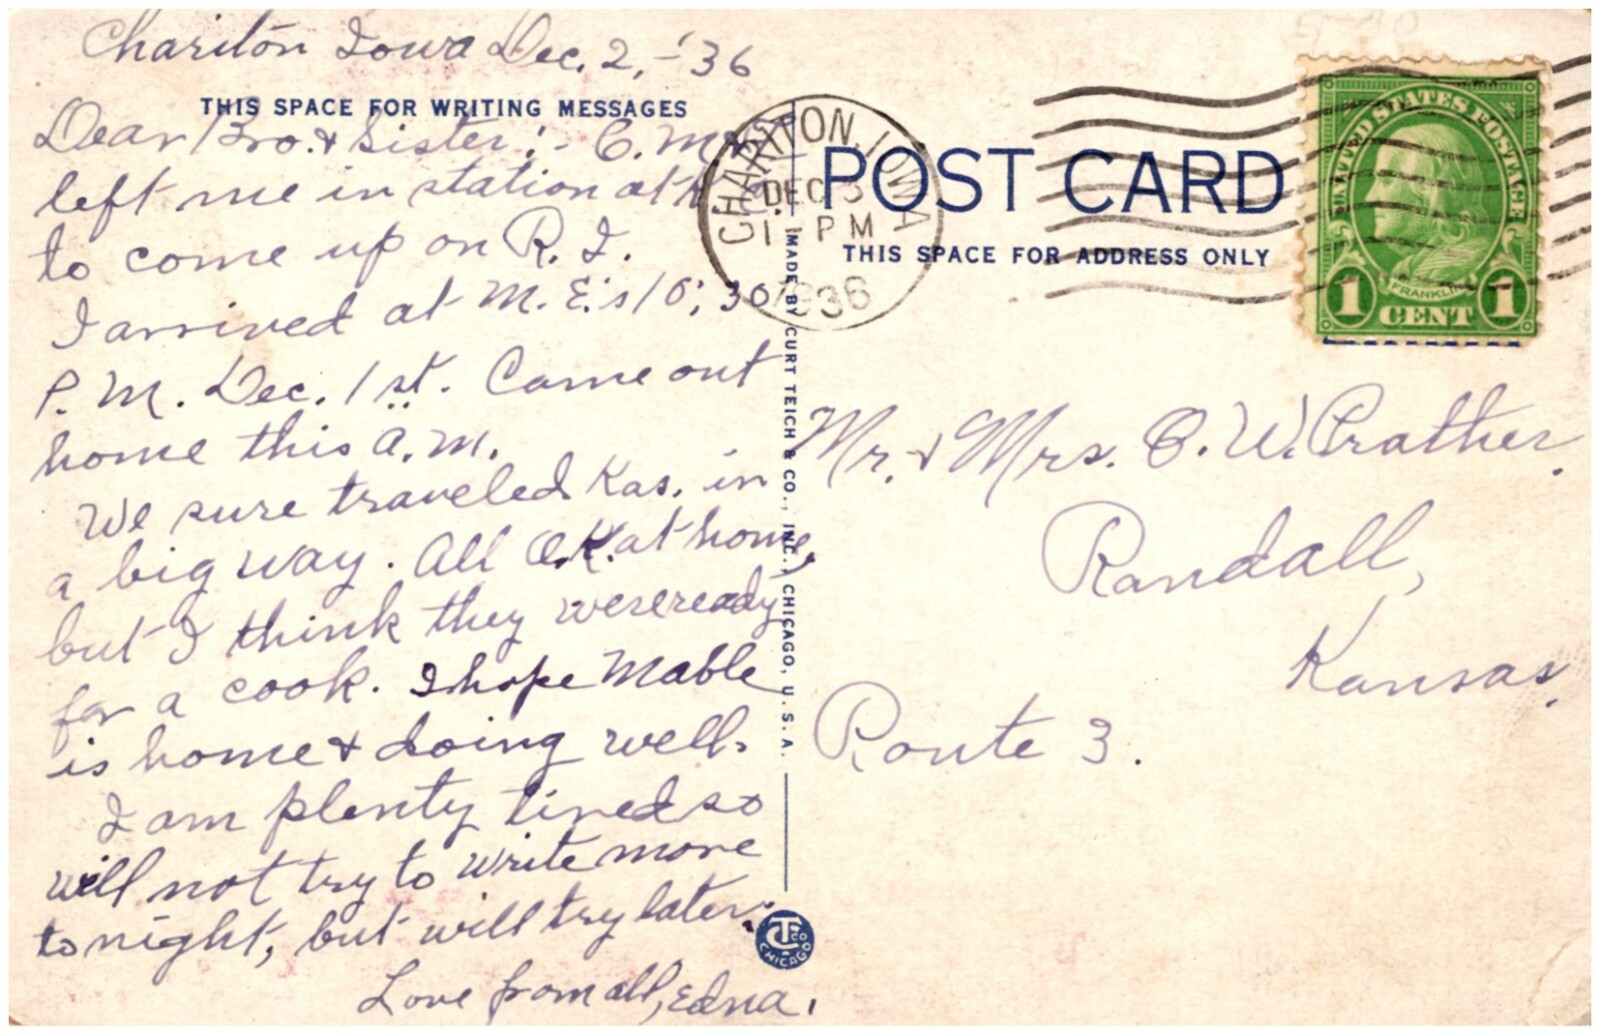 Chariton Iowa Dec. 2, -'36
THIS SPACE FOR WRITING MESSAGES
Dear Bro. & Sister: - C. M.
left me in station at
to come up on R. I.
I arrived at M. E.'s 10:30
P. M. Dec. 1st. Came out
home this A.M.
We sure traveled Kas. in
a big way. All O.K. at home,
but I think they were ready
for a cook. I hope Mable
is home & doing well.
I am plenty tired so
will not try to write more
to night, but will try later.
Love from all, Edna.
CHARITON, IOWA
DEC 3
1 - PM
1936
MADE BY CURT TEICH & CO., INC., CHICAGO, U.S.A.
CT CO
CHICAGO
POST CARD
THIS SPACE FOR ADDRESS ONLY
UNITED STATES POSTAGE
FRANKLIN
1 CENT 1
Mr. & Mrs. O. W. Prather.
Randall,
Kansas.
Route 3.